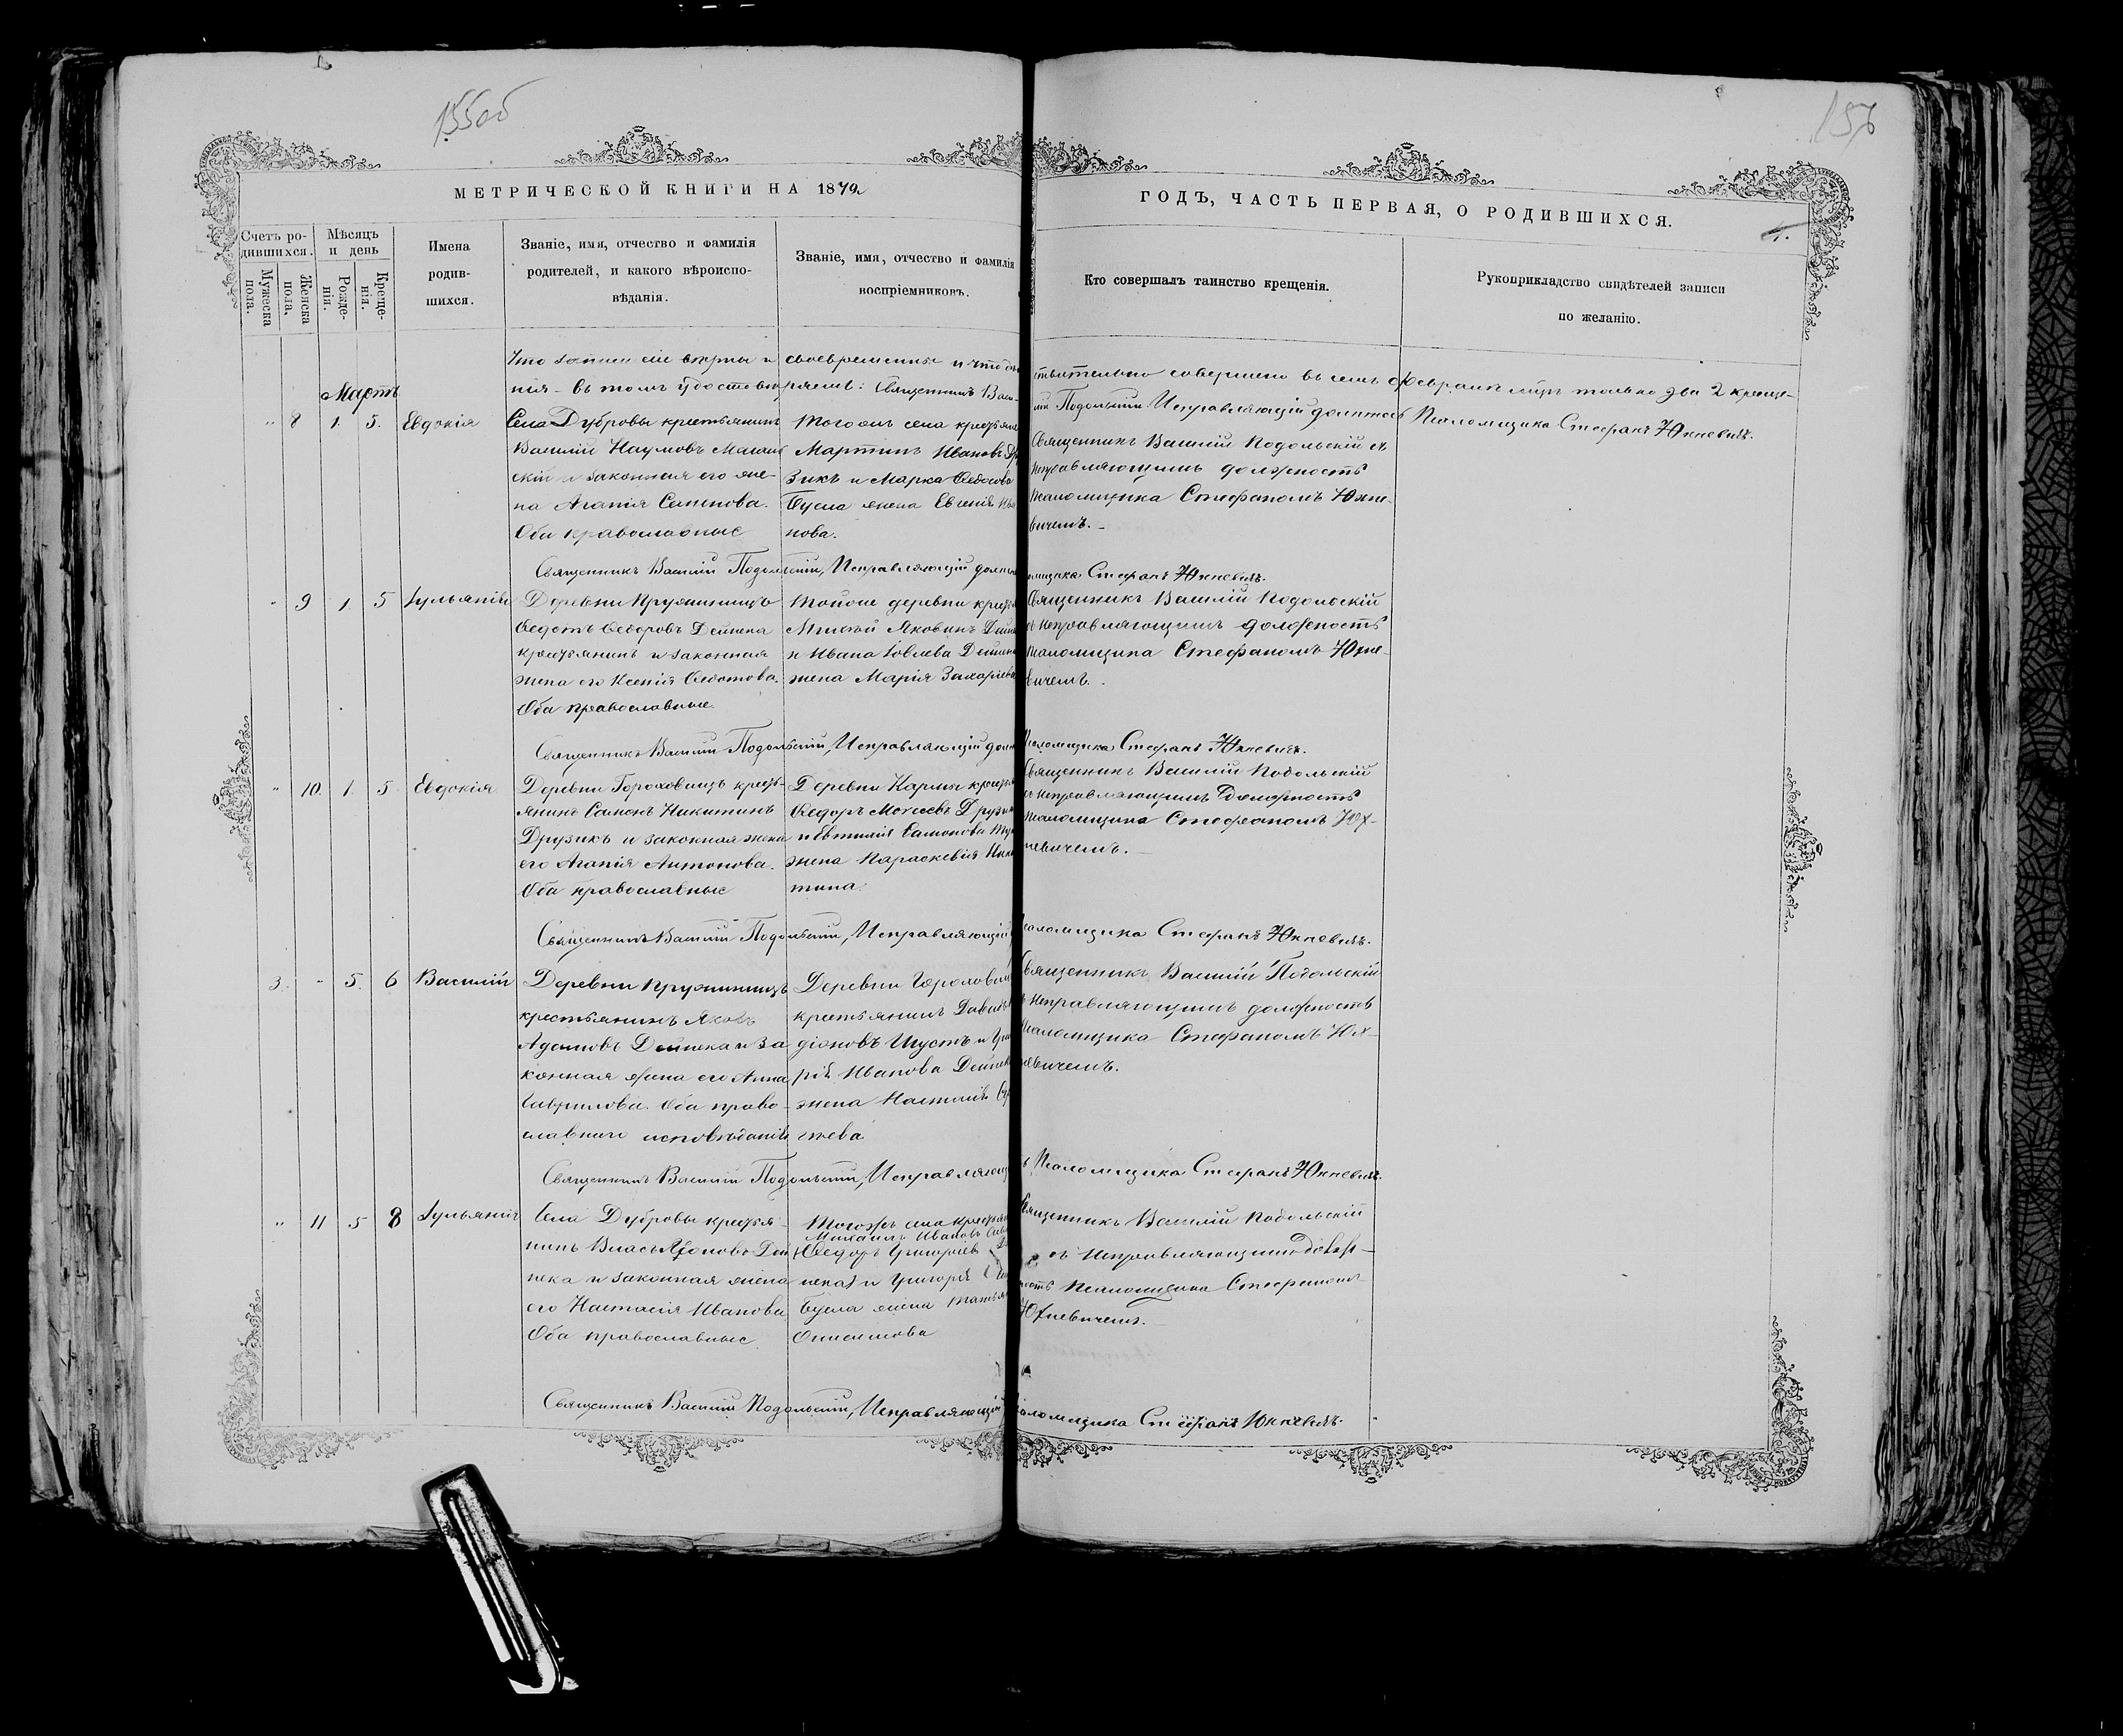 155об
156
МЕТРИЧЕСКОЙ КНИГИ НА 1879
ГОДЪ, ЧАСТЬ ПЕРВАЯ, О РОДИВШИХСЯ.
Счетъ ро-
дившихся.
Мужеска
пола.
Женска
пола,
Мѣсяцъ
и день
Рожде-
нія.
Креще-
нія.
Имена
родив-
шихся.
Званіе, имя, отчество и фамилія
родителей, и какого вѣроиспо-
вѣданія.
Званіе, имя, отчество и фамилія
воспріемниковъ.
Кто совершалъ таинство крещенія.
Рукоприкладство свидѣтелей записи
по желанію.
Что записи сіи вѣрны и своевременны и что
ствительно совершено въ семъ Февралѣ мцѣ только два 2 креще-
нія - въ томъ удостовѣряемъ: Священникъ Васи-
лій Подольскій Исправляющій должность Псаломщика Стефанъ Юхневичъ.
Мартъ
" 8 1. 5. Евдокія
Села Дубровы крестьянинъ
Василій Наумовъ
скій и законная его же-
на Агапія Семенова.
Оба православные
Тогожъ села крестьян
Мартинъ Ивановъ
зикъ и Марка Ѳедосова
Бусла жена Евгенія Ива
нова.
Священникъ Василій Подольскій съ
Исправляющимъ должность
Псаломщика Стефаномъ Юхне-
вичемъ.
Священникъ Василій Подольскій, Исправляющій
Псаломщика Стефанъ Юхневичъ.
" 9 1. 5 Іульянія
Деревни Пружинищъ
Ѳедотъ Ѳедоровъ Дейнека
крестьянинъ и законная
жена его Ксенія Ѳедотова.
Оба православные.
Тойже деревни
Яковинъ
и Ивана Іовлева Дейнеки
жена Марія Захаріева
Священникъ Василій Подольскій
съ Исправляющимъ должность
Псаломщика Стефаномъ Юхне-
вичемъ.
Священникъ Василій Подольскій, Исправляющій
Псаломщика Стефанъ Юхневичъ.
" 10. 1. 5 Евдокія
Деревни Гороховищъ кресть-
янинъ Самонъ Никитинъ
Друзикъ и законная жена
его Агапія Антонова.
Оба православные
Деревни
Ѳедоръ Моисеевъ
и Самонова
жена Параскевія Ники
тина.
Священникъ Василій Подольскій
съ Исправляющимъ должность
Псаломщика Стефаномъ Юх-
невичемъ.
Священникъ Василій Подольскій, Исправляющій
Псаломщика Стефанъ Юхневичъ.
3. " 5. 6 Василій
Деревни Пружинищъ
крестьянинъ Яковъ
Адамовъ Дейнека и за
конная жена его Анна
Гаврилова. Оба право-
славнаго исповѣданія
Деревни
крестьянинъ Давидъ
Шустъ и Гри
рія Иванова Дейнеки
жена Настасія
Священникъ Василій Подольскій
съ Исправляющимъ должность
Псаломщика Стефаномъ Юх-
невичемъ.
Священникъ Василій Подольскій, Исправляющ
Псаломщика Стефанъ Юхневичъ.
" 11 5 8 Іульянія
Села Дубровы крестья-
нинъ Власъ Дей
нека и законная жена
его Настасія Иванова
Оба православные
Тогожъ села крестьян
Михаилъ Ивановъ
Ѳедоръ Григоріевъ
нека и Григорія
Бусла жена
Онисимова
Священникъ Василій Подольскій
съ Исправляющимъ долж-
ность Псаломщика Стефаномъ
Юхневичемъ.
Священникъ Василій Подольскій, Исправляющій
Псаломщика Стефанъ Юхневичъ.